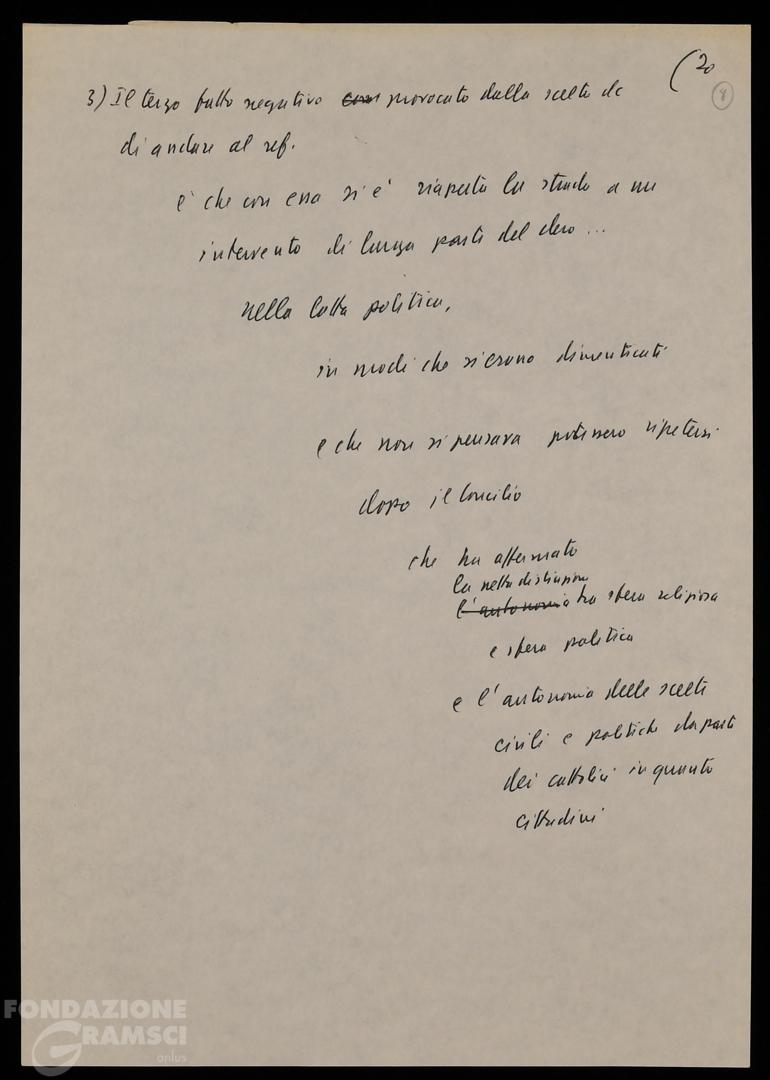 (20
8
3) Il terzo fatto negativo provocato dalla scelta dc
di andare al ref.
è che con essa si è riaperta la strada a un
intervento di larga parte del clero ...
nella lotta politica,
in modi che si erano dimenticati
e che non si pensava potessero ripetersi
dopo il Concilio
che ha affermato
la netta distinzione
l'autonomia tra sfera religiosa
e sfera politica
e l'autonomia delle scelte
civili e politiche da parte
dei cattolici in quanto
cittadini
FONDAZIONE
GRAMSCI
onlus